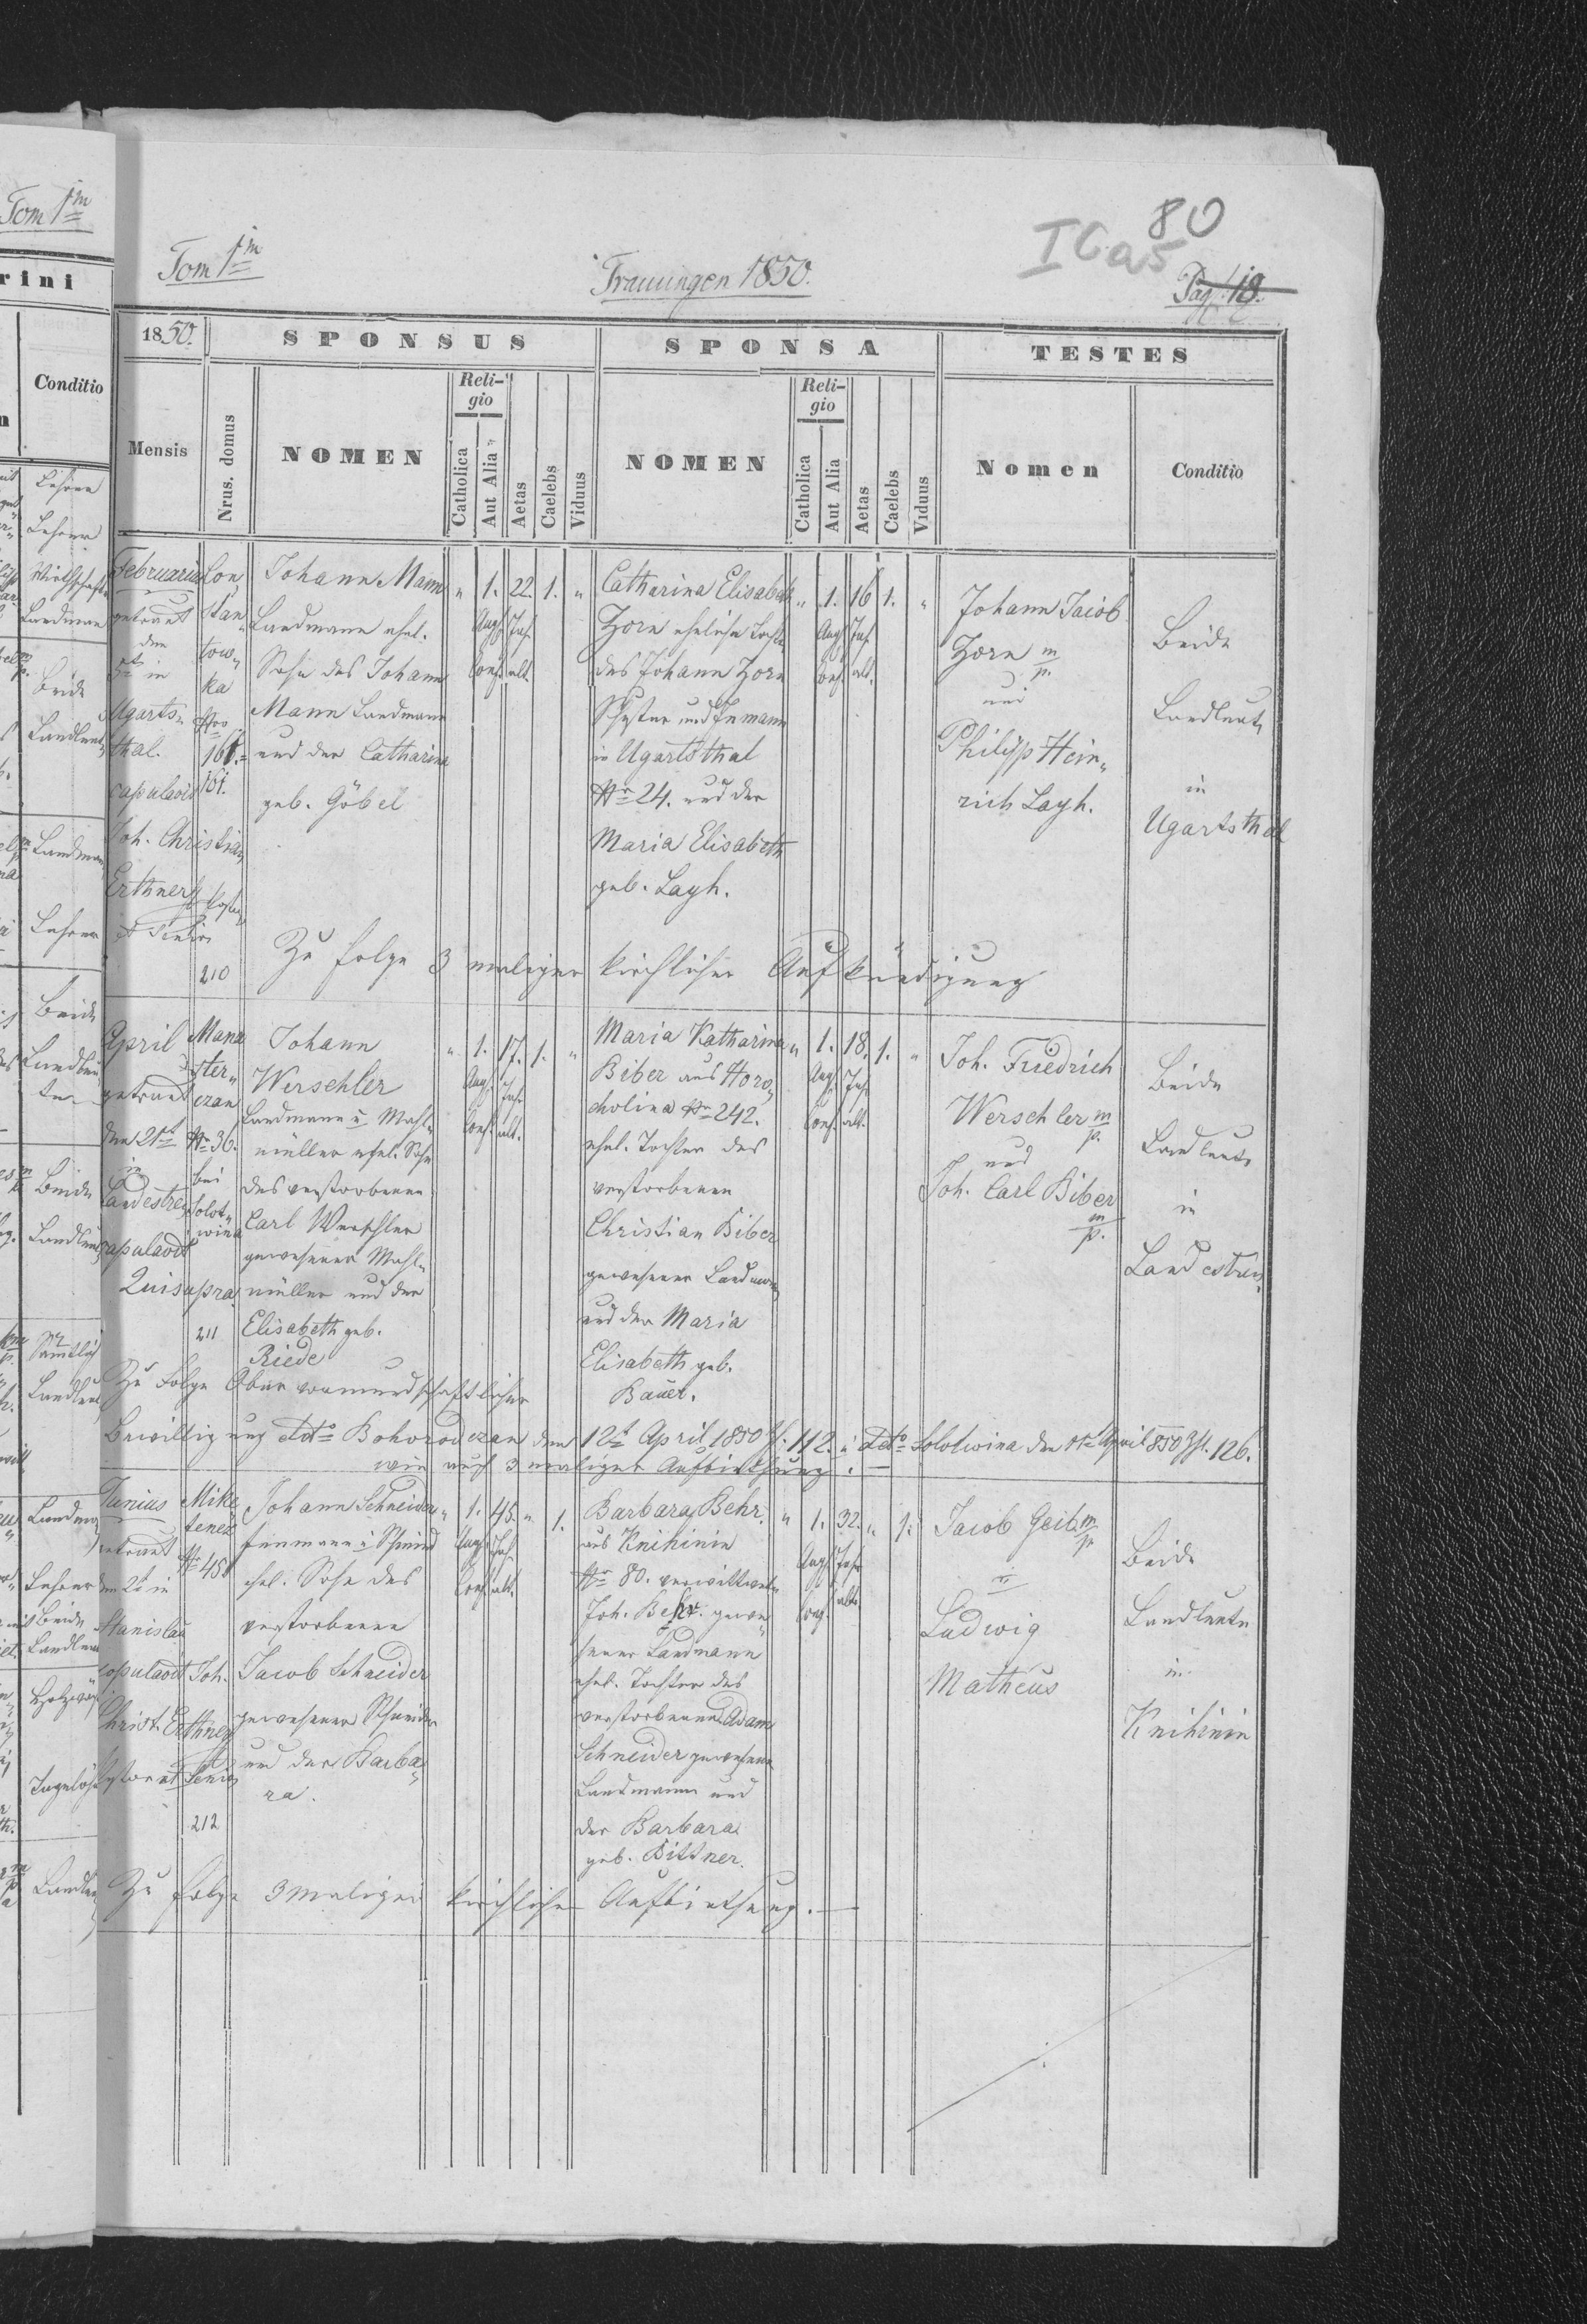 Tom 1m
Trauungen 1850.
80
I C a5
Pag. 18.
1850.
SPONSUS
SPONSA
TESTES
Mensis
Nrus. domus
NOMEN
Religio
Catholica
Aut Alia
Aetas
Caelebs
Viduus
NOMEN
Religio
Catholica
Aut Alia
Aetas
Caelebs
Viduus
Nomen
Conditio
Februarius
getraut
den
in
Ugarts-
thal.
copulavit
Joh. Christian
Erthner
Con-
stan-
tow-
ka
Nro
161.
210
Johann Mann
Landmann ehel.
Sohn des Johann
Mann Landmann
und der Catharina
geb. Göbel
" 1. 22. 1. "
Augs. Jahr
Conf. alt.
Catharina Elisabeth
Zorn eheliche Tochter
des Johann Zorn
Schuster und Inmann
in Ugartsthal
Nr 24. und der
Maria Elisabeth
geb. Layh.
" 1. 16 1. "
Augs. Jahr
Conf. alt.
Johann Jacob
Zorn m/p.
und
Philipp Hein-
rich Layh.
Beide
Landleute
in
Ugartsthal
Zu Folge 3 maliger kirchlicher Aufkündigung
April
getraut
den 21t
in
Landestreu
copulavit
Qui supra
Mana-
ster-
czan
Nr 36.
bei
Solot-
wina
211
Johann
Werschler
Landmann u Mahl-
müller ehel. Sohn
des verstorbenen
Carl Werschler
gewesener Mahl-
müller und der
Elisabeth geb.
Riede
" 1. 17. 1. "
Augs. Jahr
Conf. alt.
Maria Katharina
Biber aus Horo-
cholina Nr 242.
ehel. Tochter des
verstorbenen
Christian Biber
gewesener Landmann
und der Maria
Elisabeth geb.
Bauer.
" 1. 18. 1. "
Augs. Jahr
Conf. alt.
Joh. Friedrich
Werschler m/p.
und
Joh. Carl Biber
m/p.
Beide
Landleute
in
Landestreu
Zu Folge Obervormundschaftlicher
Bewilligung ddto Bohorodczan den 12t April 1850 Z. 112. u ddto Solotwina den April 850 Z. 126.
wie auch 3 maliger Aufbiethung.
Junius
getraut
den 2t in
Stanislau
copulavit Joh.
Christ. Erthner
Pastor et Senior
Mike-
tenez
Nr 48
212
Johann Schneider
Inmann u Schmied
ehel. Sohn des
verstorbenen
Jacob Schneider
gewesener Schneider
und der Barba-
ra.
" 1. 45. " 1.
Augs. Jahr
Conf. alt.
Barbara Behr.
aus Knihinin
Nr 80. verwittwete
Joh. Behr. gewe-
sener Landmann
ehel. Tochter des
verstorbenen Adam
Schneider gewesener
Landmann und
der Barbara
geb. Bittner.
" 1. 32. " 1.
Augs. Jahr
Conf. alt.
Jacob Geib m/p
u
Ludwig
Matheus
Beide
Landleute
in
Knihinin
Zu Folge 3 maliger kirchlicher Aufbiethung.